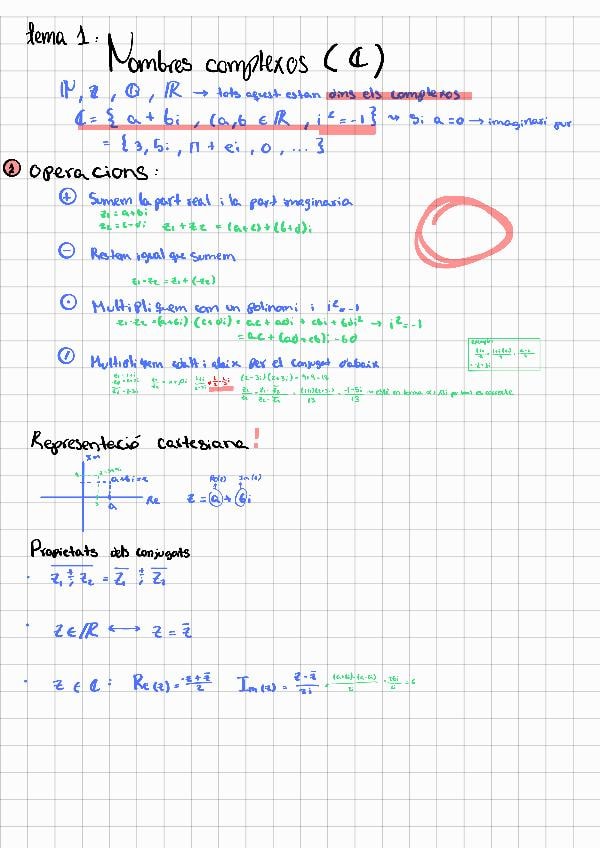 tema 1: Nombres complexos (ℂ)
ℕ, ℤ, ℚ, ℝ → tots aquest estan dins els complexos
ℂ = { a + bi , (a,b ∈ ℝ , i² = -1 } → Si a = 0 → imaginari pur
= { 3, 5i, π + ei, 0, ... }
1 Operacions:
+ Sumem la part real i la part imaginaria
z₁ = a+bi
z₂ = c+di z₁ + z₂ = (a+c) + (b+d)i
- Restem igual que sumem
z₁ - z₂ = z₁ + (-z₂)
· Multipliquem com un polinomi i i² = -1
z₁ · z₂ = (a+bi) (c+di) = ac + adi + cbi + bdi² → i² = -1
= ac + (ad+cb)i - bd
/ Multipliquem adalt i abaix per el conjugat d'abaix
(2-3i)(2+3i) = 4+9 = 13
Representació cartesiana !
Im
a+bi = z
Re
a
Re(z) Im(z)
z = a + bi
Propietats dels conjugats
· z₁ ± z₂ = z̄₁ ± z̄₂
· z ∈ ℝ ↔ z = z̄
· z ∈ ℂ: Re(z) = z + z̄ / 2 Im(z) = z - z̄ / 2i = (a+bi)-(a-bi) / 2i = 2bi / 2i = b